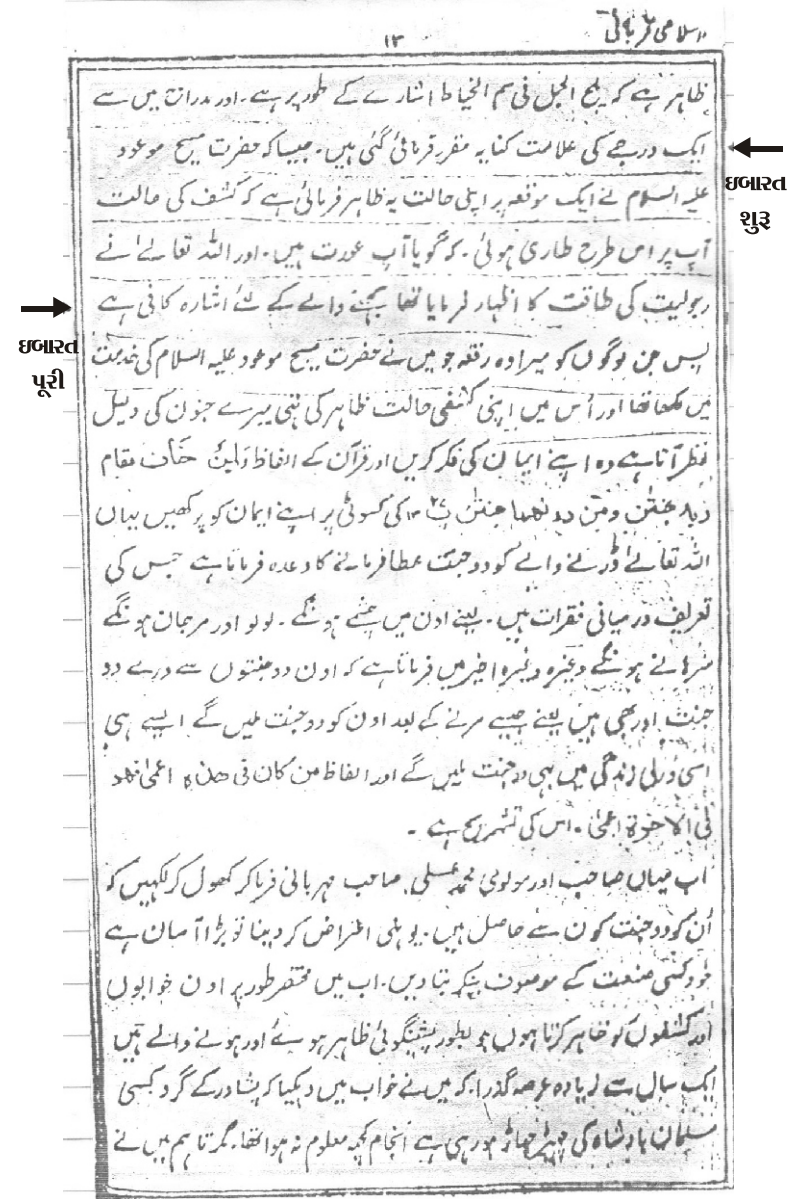 اسلامی قربانی
۱۳
ظاہر ہے کہ یلج الجمل فی سم الخیاط اشارے کے طور پر ہے۔ اور مدراج میں سے
ایک درجے کی علامت کنایہ مقرر فرمائی گئی ہیں۔ جیسا کہ حضرت مسیح موعود
علیہ السلام نے ایک موقعہ پر اپنی حالت یہ ظاہر فرمائی ہے کہ کشف کی حالت
آپ پر اس طرح طاری ہوئی۔ کہ گویا آپ عورت ہیں۔ اور اللہ تعالےٰ نے
رجولیت کی طاقت کا اظہار فرمایا تھا سمجھنے والے کے لئے اشارہ کافی ہے
ઇબારત
શુરૂ
ઇબારત
પૂરી
پس جن لوگوں کو میرا وہ رقعہ جو میں نے حضرت مسیح موعود علیہ السلام کی خدمت
میں لکھا تھا اور اُس میں اپنی کشفی حالت ظاہر کی تھی میرے جنون کی دلیل
نظر آتا ہے وہ اپنے ایمان کی فکر کریں اور قرآن کے الفاظ ولمن خاف مقام
ربہ جنتٰن ومن دونھما جنتٰن کی کسوٹی پر اپنے ایمان کو پرکھیں یہاں
اللہ تعالےٰ ڈرنے والے کو دو جنت عطا فرمانے کا وعدہ فرماتا ہے جس کی
تعریف درمیانی فقرات ہیں۔ یعنے اون میں چشمے ہونگے۔ لولو اور مرجان ہونگے
ہونگے وغیرہ وغیرہ اخیر میں فرماتا ہے کہ اون دو جنتوں سے ورے دو
جنت اور بھی ہیں یعنے جیسے مرنے کے بعد اون کو دو جنت ملیں گے ایسے ہی
اسی ورلی زندگی میں بھی دو جنت ملیں گے اور الفاظ من کان فی ھذہ اعمیٰ فھو
فی الاخرة اعمیٰ۔ اس کی تشریح ہے۔
اب میاں صاحب اور مولوی محمد علی صاحب مہربانی فرما کر کھول کر لکھیں کہ
اُن کو دو جنت کون سے حاصل ہیں۔ یوہنی اعتراض کر دینا تو بڑا آسان ہے
خود کسی صنعت کے موصوف بنکر بتا دیں۔ اب میں مختصر طور پر اون خوابوں
اور کشفوں کو ظاہر کرتا ہوں جو بطور پیشنگوئی ظاہر ہوئے اور ہونے والے ہیں
ایک سال سے زیادہ عرصہ گذرا۔ کہ میں نے خواب میں دیکھا کہ پشاور کے گرد کسی
مسلمان بادشاہ کی چھیڑ چھاڑ ہو رہی ہے انجام کچھ معلوم نہ ہوا تھا۔ مگر تاہم میں نے